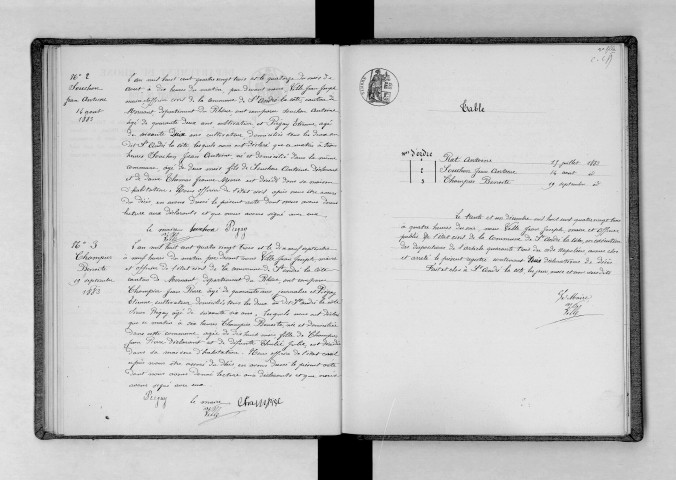 N° 2
Souchon
Jean Antoine
14 août
1883
L'an mil huit cent quatre vingt trois et le quatorze du mois de
août à dix heures du matin par devant nous Villy Jean Joseph
maire officier civil de la commune de St André la côte, canton de
Mornant département du Rhône ont comparu Souchon Antoine
âgé de quarante deux ans cultivateur et Pugny Etienne, âgé
de soixante deux ans cultivateur domiciliés tous les deux au
dit St André la côte lesquels nous ont déclaré que ce matin à trois
heures Souchon Jean Antoine né et domicilié dans la même
commune, âgé de deux mois fils de Souchon Antoine déclarant
et de dame Jeanne Marie est décédé dans sa maison
d'habitation. Nous officier de l'état civil après nous être assuré
du décès en avons dressé le présent acte dont nous avons donné
lecture aux déclarants et que nous avons signé avec eux.
le maire Souchon Pugny
Villy
N° 3
Champier
Benoite
19 septembre
1883
L'an mil huit cent quatre vingt trois et le dix neuf septembre
à neuf heures du matin par devant nous Villy Jean Joseph, maire
et officier de l'état civil de la commune de St André la côte
canton de Mornant, département du Rhône, ont comparu
Champier Jean Pierre âgé de quarante ans journalier et Pugny
Etienne cultivateur, domiciliés tous les deux au dit St André la côte
Pugny âgé de soixante six ans, lesquels nous ont déclaré
que ce matin à six heures Champier Benoite, née et domiciliée
dans cette commune, âgée de dix huit mois fille de Champier
Jean Pierre déclarant et de défunte Julie, est décédée
dans sa maison d'habitation. Nous officier de l'état civil
après nous être assuré du décès en avons dressé le présent acte
dont nous avons donné lecture aux déclarants et que nous
avons signé avec eux.
Pugny le maire Champier
Villy
Table
Nos d'ordre
1 Rat Antoine 15 juillet 1883
2 Souchon Jean Antoine 14 août d°
3 Champier Benoite 19 septembre d°
Le trente et un décembre mil huit cent quatre vingt trois
à quatre heures du soir, nous Villy Jean Joseph, maire et officier
public de l'état civil de la Commune de St André la côte, en exécution
des dispositions de l'article quarante trois du code Napoléon avons clos
et arrêté le présent registre contenant trois déclarations de décès
Fait et clos à St André la côte les jour, mois et an susdits
Le Maire
Villy